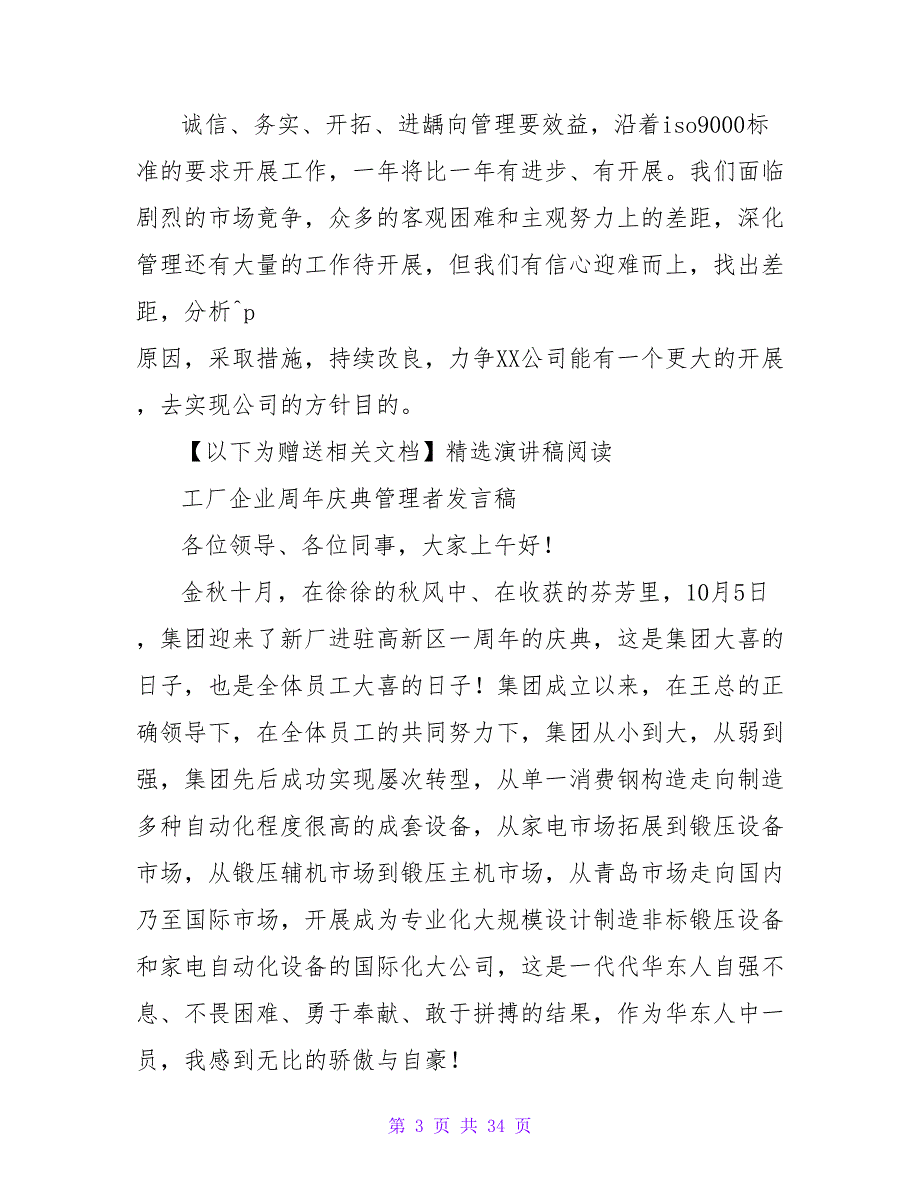 诚信、务实、开拓、进龋向管理要效益，沿着iso9000标
准的要求开展工作，一年将比一年有进步、有开展。我们面临
剧烈的市场竟争，众多的客观困难和主观努力上的差距，深化
管理还有大量的工作待开展，但我们有信心迎难而上，找出差
距，分析^p
原因，采取措施，持续改良，力争XX公司能有一个更大的开展
，去实现公司的方针目的。
【以下为赠送相关文档】精选演讲稿阅读
工厂企业周年庆典管理者发言稿
各位领导、各位同事，大家上午好！
金秋十月，在徐徐的秋风中、在收获的芬芳里，10月5日
，集团迎来了新厂进驻高新区一周年的庆典，这是集团大喜的
日子，也是全体员工大喜的日子！集团成立以来，在王总的正
确领导下，在全体员工的共同努力下，集团从小到大，从弱到
强，集团先后成功实现屡次转型，从单一消费钢构造走向制造
多种自动化程度很高的成套设备，从家电市场拓展到锻压设备
市场，从锻压辅机市场到锻压主机市场，从青岛市场走向国内
乃至国际市场，开展成为专业化大规模设计制造非标锻压设备
和家电自动化设备的国际化大公司，这是一代代华东人自强不
息、不畏困难、勇于奉献、敢于拼搏的结果，作为华东人中一
员，我感到无比的骄傲与自豪！
第 3 页 共 34 页